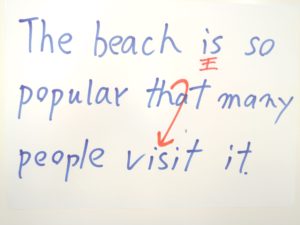 The beach is so
popular that many
people visit it.